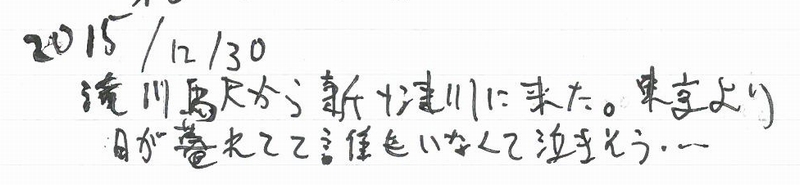 2015/12/30
滝川駅から新十津川に来た。東京より
日が暮れてて誰もいなくて泣きそう・〜